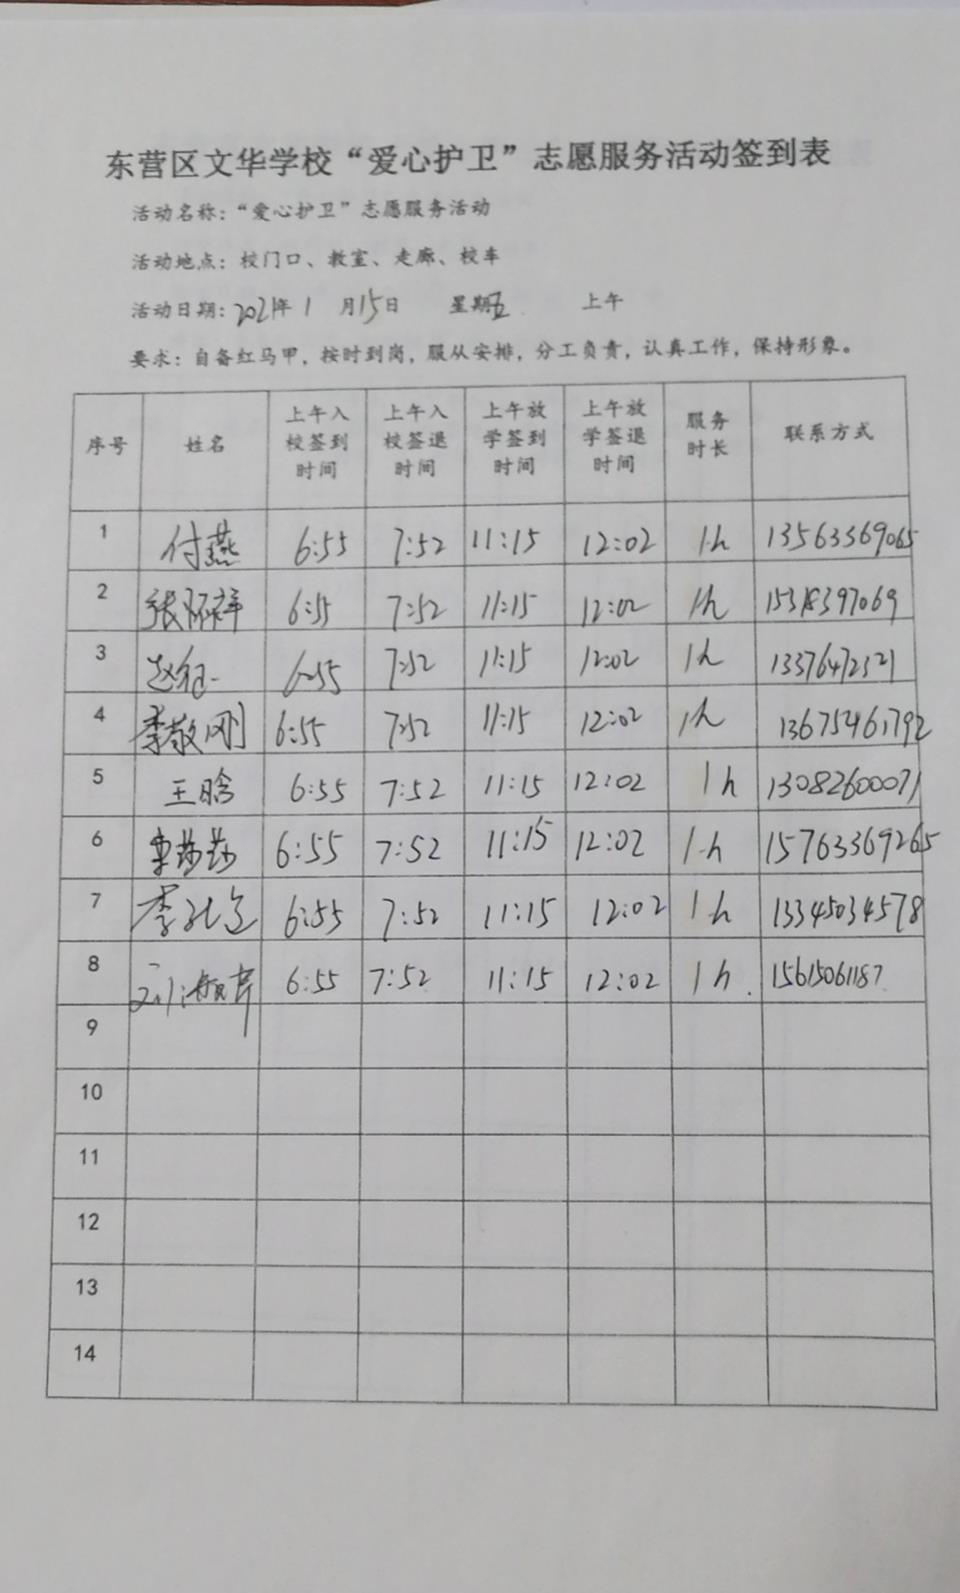 东营区文华学校“爱心护卫”志愿服务活动签到表
活动名称：“爱心护卫”志愿服务活动
活动地点：校门口、教室、走廊、校车
活动日期：2021年1月15日 星期五 上午
要求：自备红马甲，按时到岗，服从安排，分工负责，认真工作，保持形象。
序号 姓名 上午入校签到时间 上午入校签退时间 上午放学签到时间 上午放学签退时间 服务时长 联系方式
1 付燕 6:55 7:52 11:15 12:02 1h 13563369065
2 张怀祥 6:55 7:52 11:15 12:02 1h 15318397069
3 6:55 7:52 11:15 12:02 1h 13376472321
4 李敬刚 6:55 7:52 11:15 12:02 1h 13675461792
5 王晗 6:55 7:52 11:15 12:02 1h 13082600071
6 莎莎 6:55 7:52 11:15 12:02 1h 15763369265
7 李 6:55 7:52 11:15 12:02 1h 13345034578
8 刘海 6:55 7:52 11:15 12:02 1h 15615061187
9
10
11
12
13
14